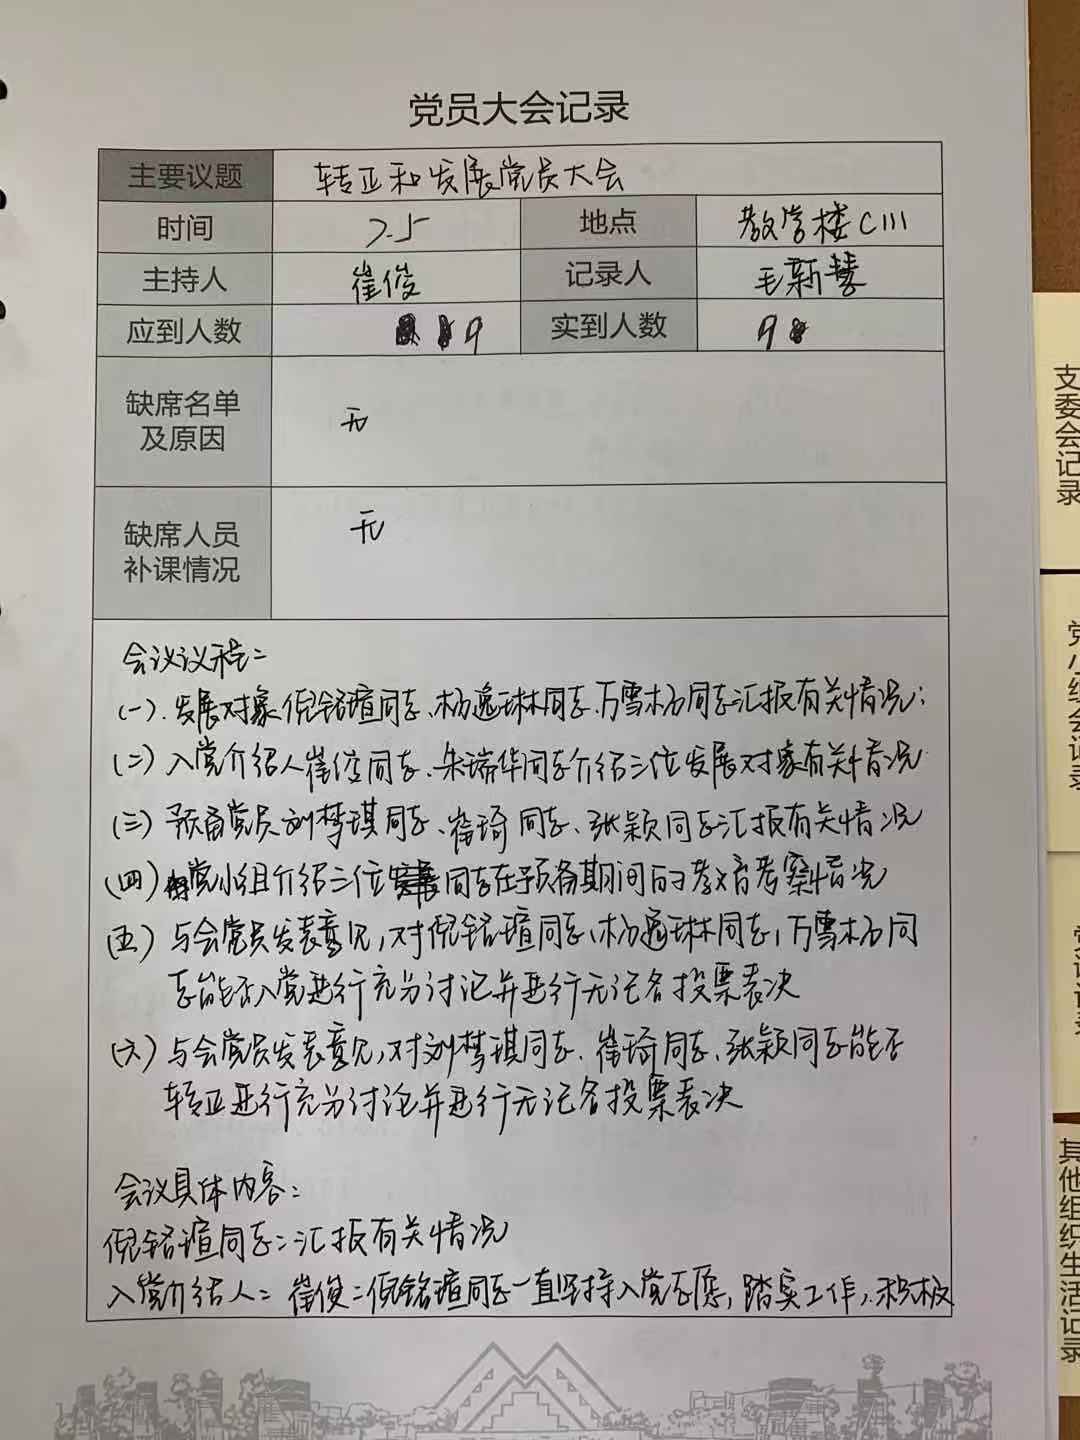 党员大会记录
主要议题 转正和发展党员大会
时间 7.5 地点 教学楼C111
主持人 崔俊 记录人 毛新慧
应到人数 9 实到人数 9
缺席名单
及原因 无
缺席人员
补课情况 无
会议议程:
(一).发展对象倪铭瑄同志、杨逸琳同志、万雪杨同志汇报有关情况;
(二)入党介绍人崔俊同志、朱瑞华同志介绍三位发展对象有关情况
(三)预备党员刘梦琪同志、崔琦同志、张颖同志汇报有关情况
(四)党小组介绍三位同志在预备期间的教育考察情况
(五)与会党员发表意见,对倪铭瑄同志、杨逸琳同志,万雪杨同
志能否入党进行充分讨论并进行无记名投票表决
(六)与会党员发表意见,对刘梦琪同志、崔琦同志、张颖同志能否
转正进行充分讨论并进行无记名投票表决
会议具体内容:
倪铭瑄同志:汇报有关情况
入党介绍人:崔俊:倪铭瑄同志一直坚持入党志愿,踏实工作,积极
支委会记录
党小组会记录
党课记录
其他组织生活记录